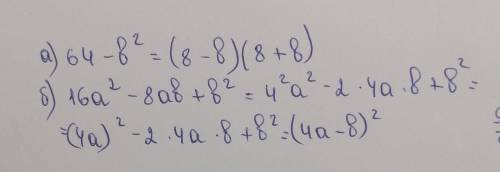 а) 64 - в² = (8 - в)(8 + в)
б) 16а² - 8ав + в² = 4²а² - 2 · 4а · в + в² =
= (4а)² - 2 · 4а · в + в² = (4а - в)²